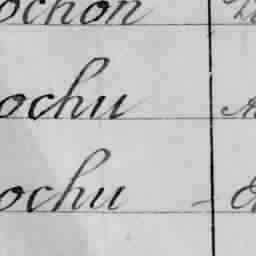 ochon
ochu
ochu